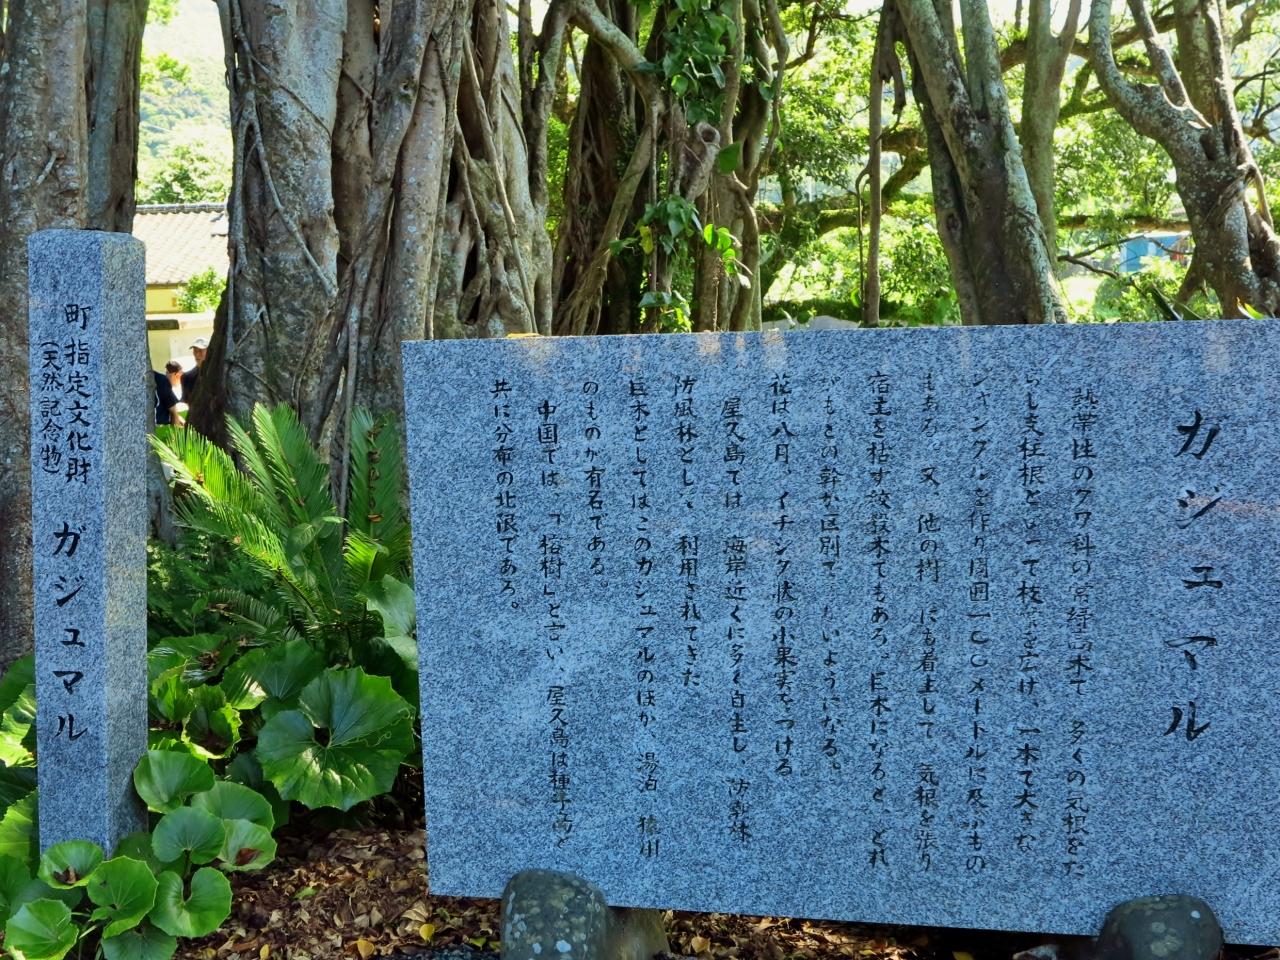 町指定文化財
(天然記念物)
ガジュマル
ガジュマル
熱帯性のクワ科の常緑高木で 多くの気根をた
らし支柱根となって枝 を広げ、一本で大きな
ジャングルを作り周囲一〇〇メートルに及ぶもの
もある。又、他の樹 にも着生して 気根を張り
宿主を枯す絞殺木でもある。巨木になると、どれ
がもとの幹か区別で ないようになる。
花は八月、イチジク状の小果実をつける
屋久島では 海岸近くに多く自生し、防 林
防風林として 利用されてきた
巨木としてはこのガジュマルのほか、湯泊 猿川
のものが有名である。
中国では、「榕樹」と言い、屋久島は種子島と
共に分布の北限である。